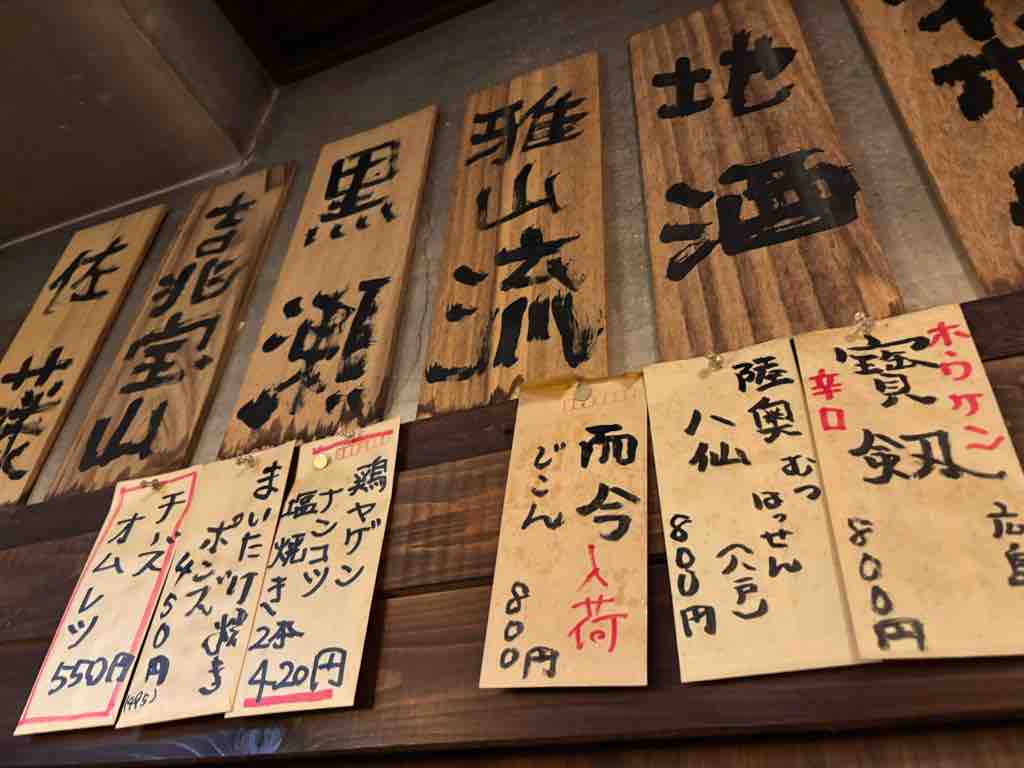 地酒
雅山流
黒
吉兆宝山
佐藤
ホウケン
寶剱
辛口
広島
800円
陸奥
八仙
むつ
はっせん
(八戸)
800円
而今
入荷
じこん
800円
鶏ヤゲン
ナンコツ
塩焼き2本
420円
まいたけ焼き
ポンズ
450円
チーズ
オムレツ
550円